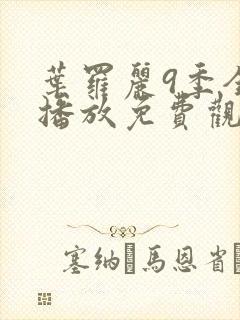 葉羅麗9季全
播放免費觀
塞纳·馬恩省